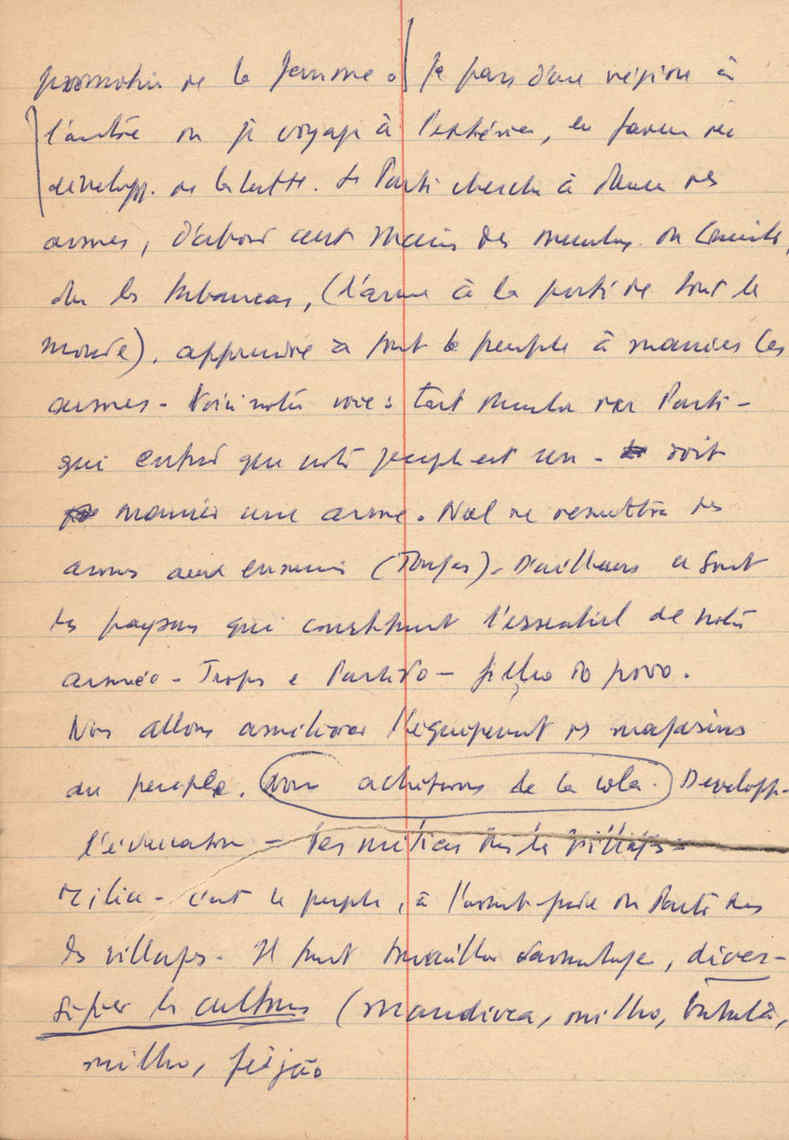 promotion de la femme. Je pars d'une région à
l'autre ou je voyage à l'extérieur, en faveur du
developp. de la lutte. Le Parti cherche à donner des
armes, d'abord aux mains des membres du Comité,
des les tabancas, (l'arme à la porté de tout le
monde). apprendre à tout le peuple à manier les
armes - Voici notre voie: tout membre du Parti -
qui entend que notre peuple est un - doit
manier une arme. Nul ne remettra des
armes aux ennemis (Tougas). D'ailleurs ce sont
les paysans qui constituent l'essentiel de notre
armée - Tropa e Partido - filho do povo.
Nous allons améliorer l'équipement des magasins
du peuple. Nous achetons de la cola. Developp.
l'éducation - Les milices des les villages -
Milice - c'est le peuple, à l'avant-garde du Parti dans
les villages. Il faut travailler davantage, diver-
sifier les cultures (mandioca, milho, batata,
milho, feijão